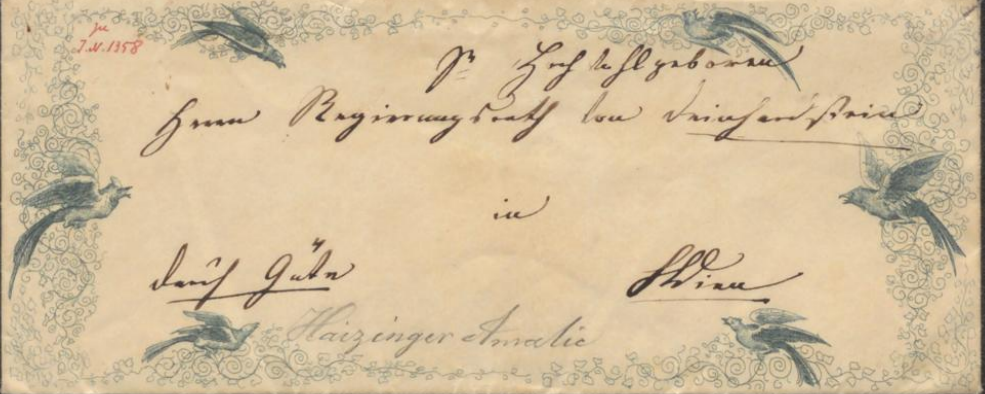 zu
I.N. 1358
Sr Hochwohlgeboren
Herrn Regierungsrath von Deinhardstein
in
durch Güte
Wien
Haizinger Amalie